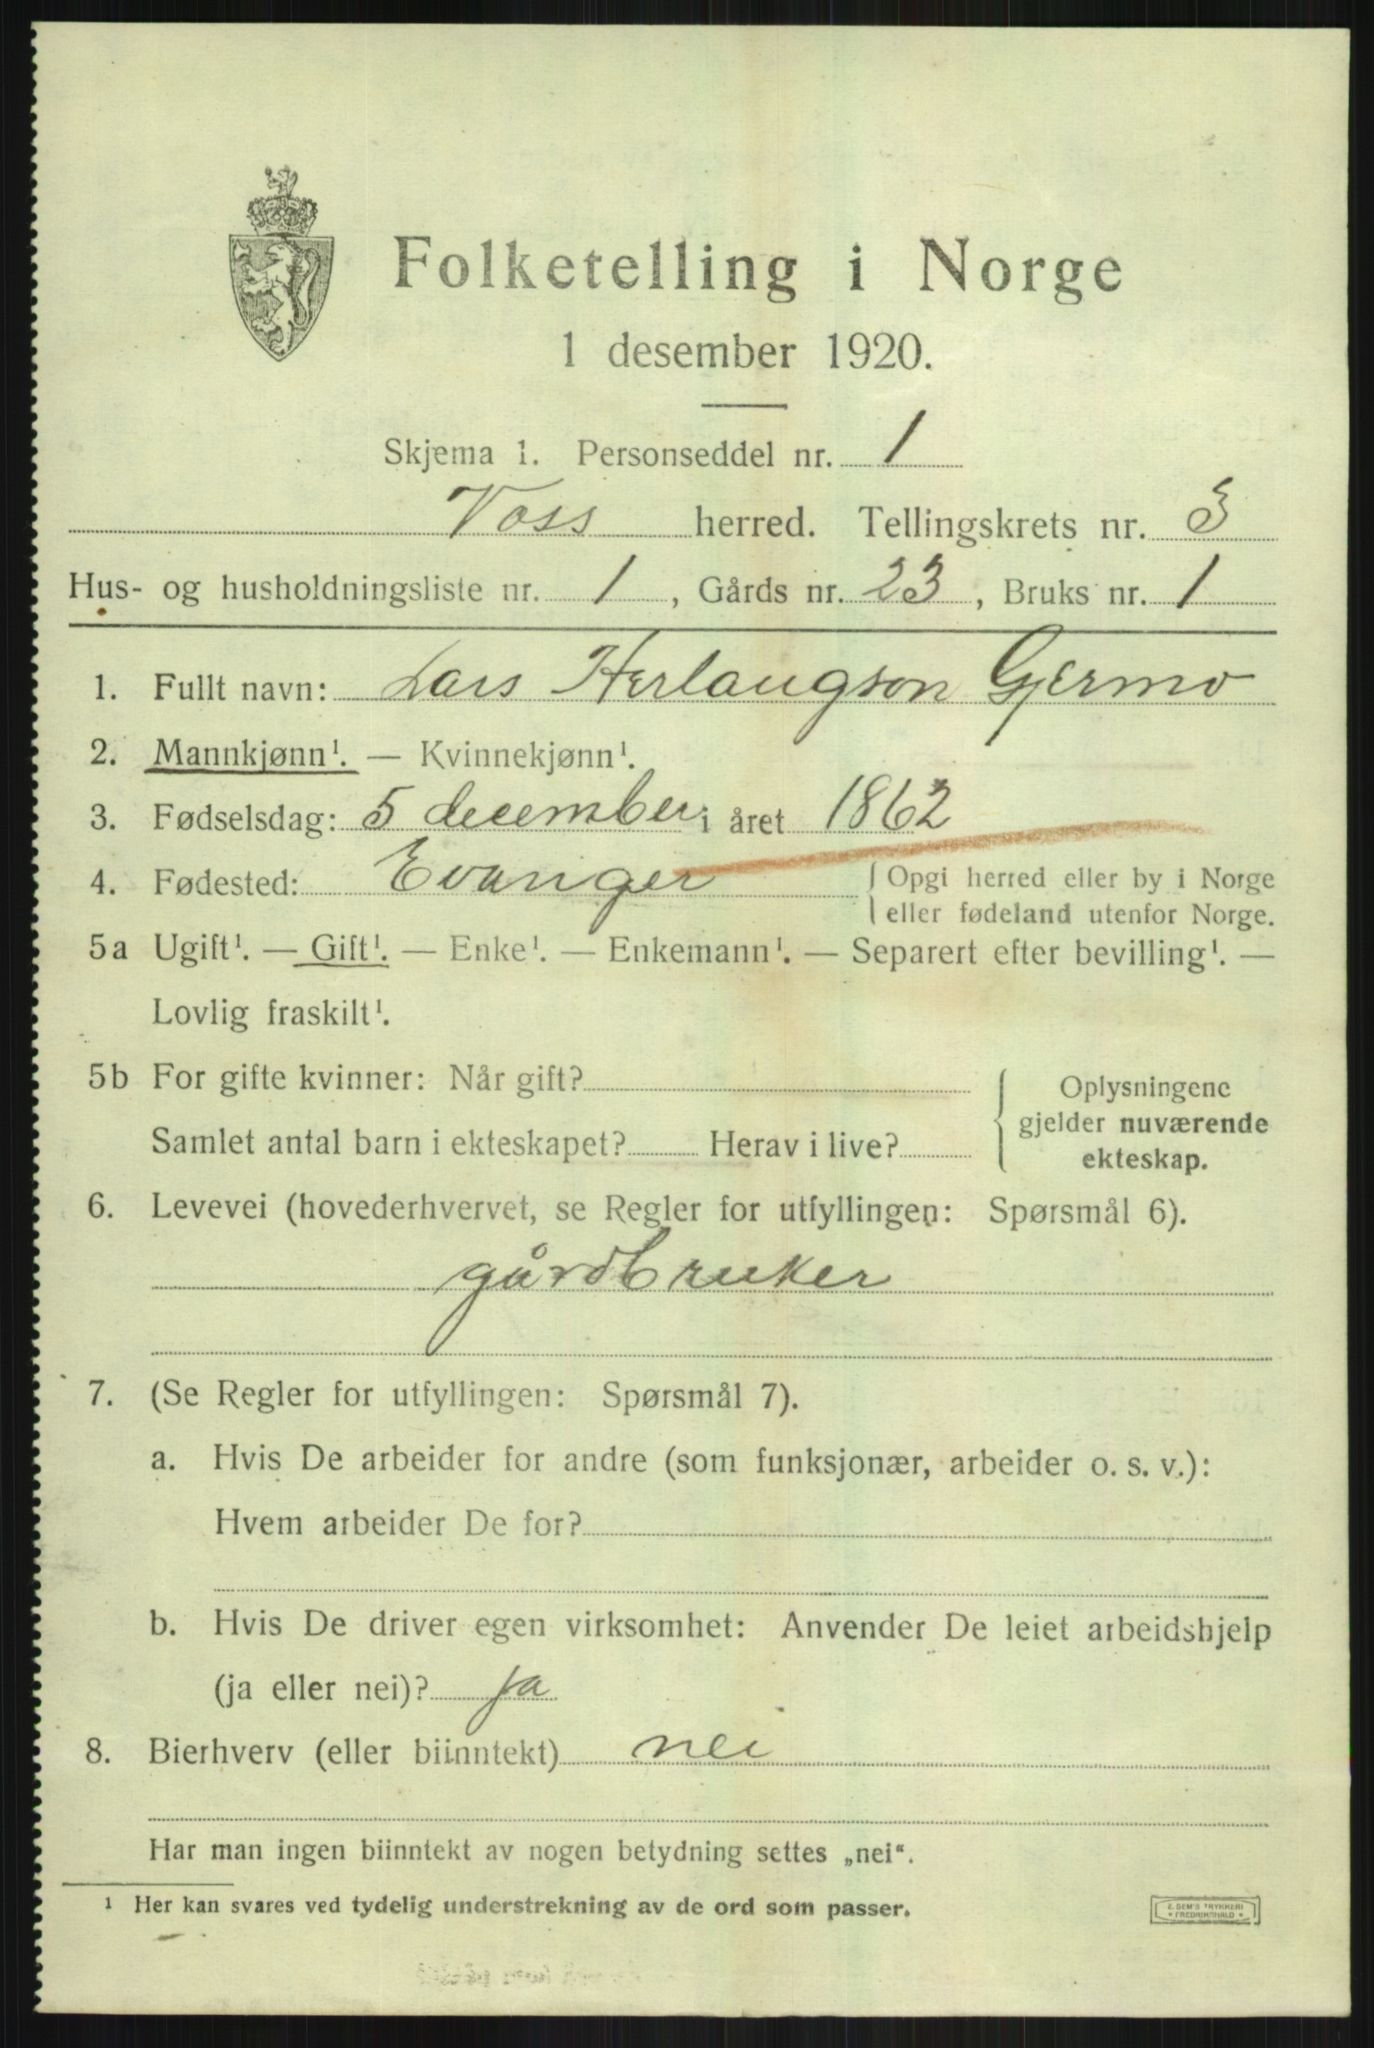 Folketelling i Norge
1 desember 1920.
Skjema 1. Personseddel nr. 1
Voss herred. Tellingskrets nr. 3
Hus- og husholdningsliste nr. 1, Gårds nr. 23, Bruks nr. 1
1. Fullt navn: Lars Herlaugson Gjermo
2. Mannkjønn¹. — Kvinnekjønn¹.
3. Fødselsdag: 5 december i året 1862
4. Fødested: Evanger {Opgi herred eller by i Norge
eller fødeland utenfor Norge.
5a Ugift¹. — Gift¹. — Enke¹. — Enkemann¹. — Separert efter bevilling¹. —
Lovlig fraskilt¹.
5b For gifte kvinner: Når gift?
Samlet antal barn i ekteskapet? Herav i live?
{Oplysningene
gjelder nuværende
ekteskap.
6. Levevei (hovederhvervet, se Regler for utfyllingen: Spørsmål 6).
gårdbruker
7. (Se Regler for utfyllingen: Spørsmål 7).
a. Hvis De arbeider for andre (som funksjonær, arbeider o. s. v.):
Hvem arbeider De for?
b. Hvis De driver egen virksomhet: Anvender De leiet arbeidshjelp
(ja eller nei)? ja
8. Bierhverv (eller biinntekt) nei
Har man ingen biinntekt av nogen betydning settes „nei“.
¹ Her kan svares ved tydelig understrekning av de ord som passer.
E. SEM'S TRYKKERI
* FREDRIKSHALD *